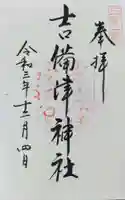 奉拝
吉備津神社
令和三年十二月四日